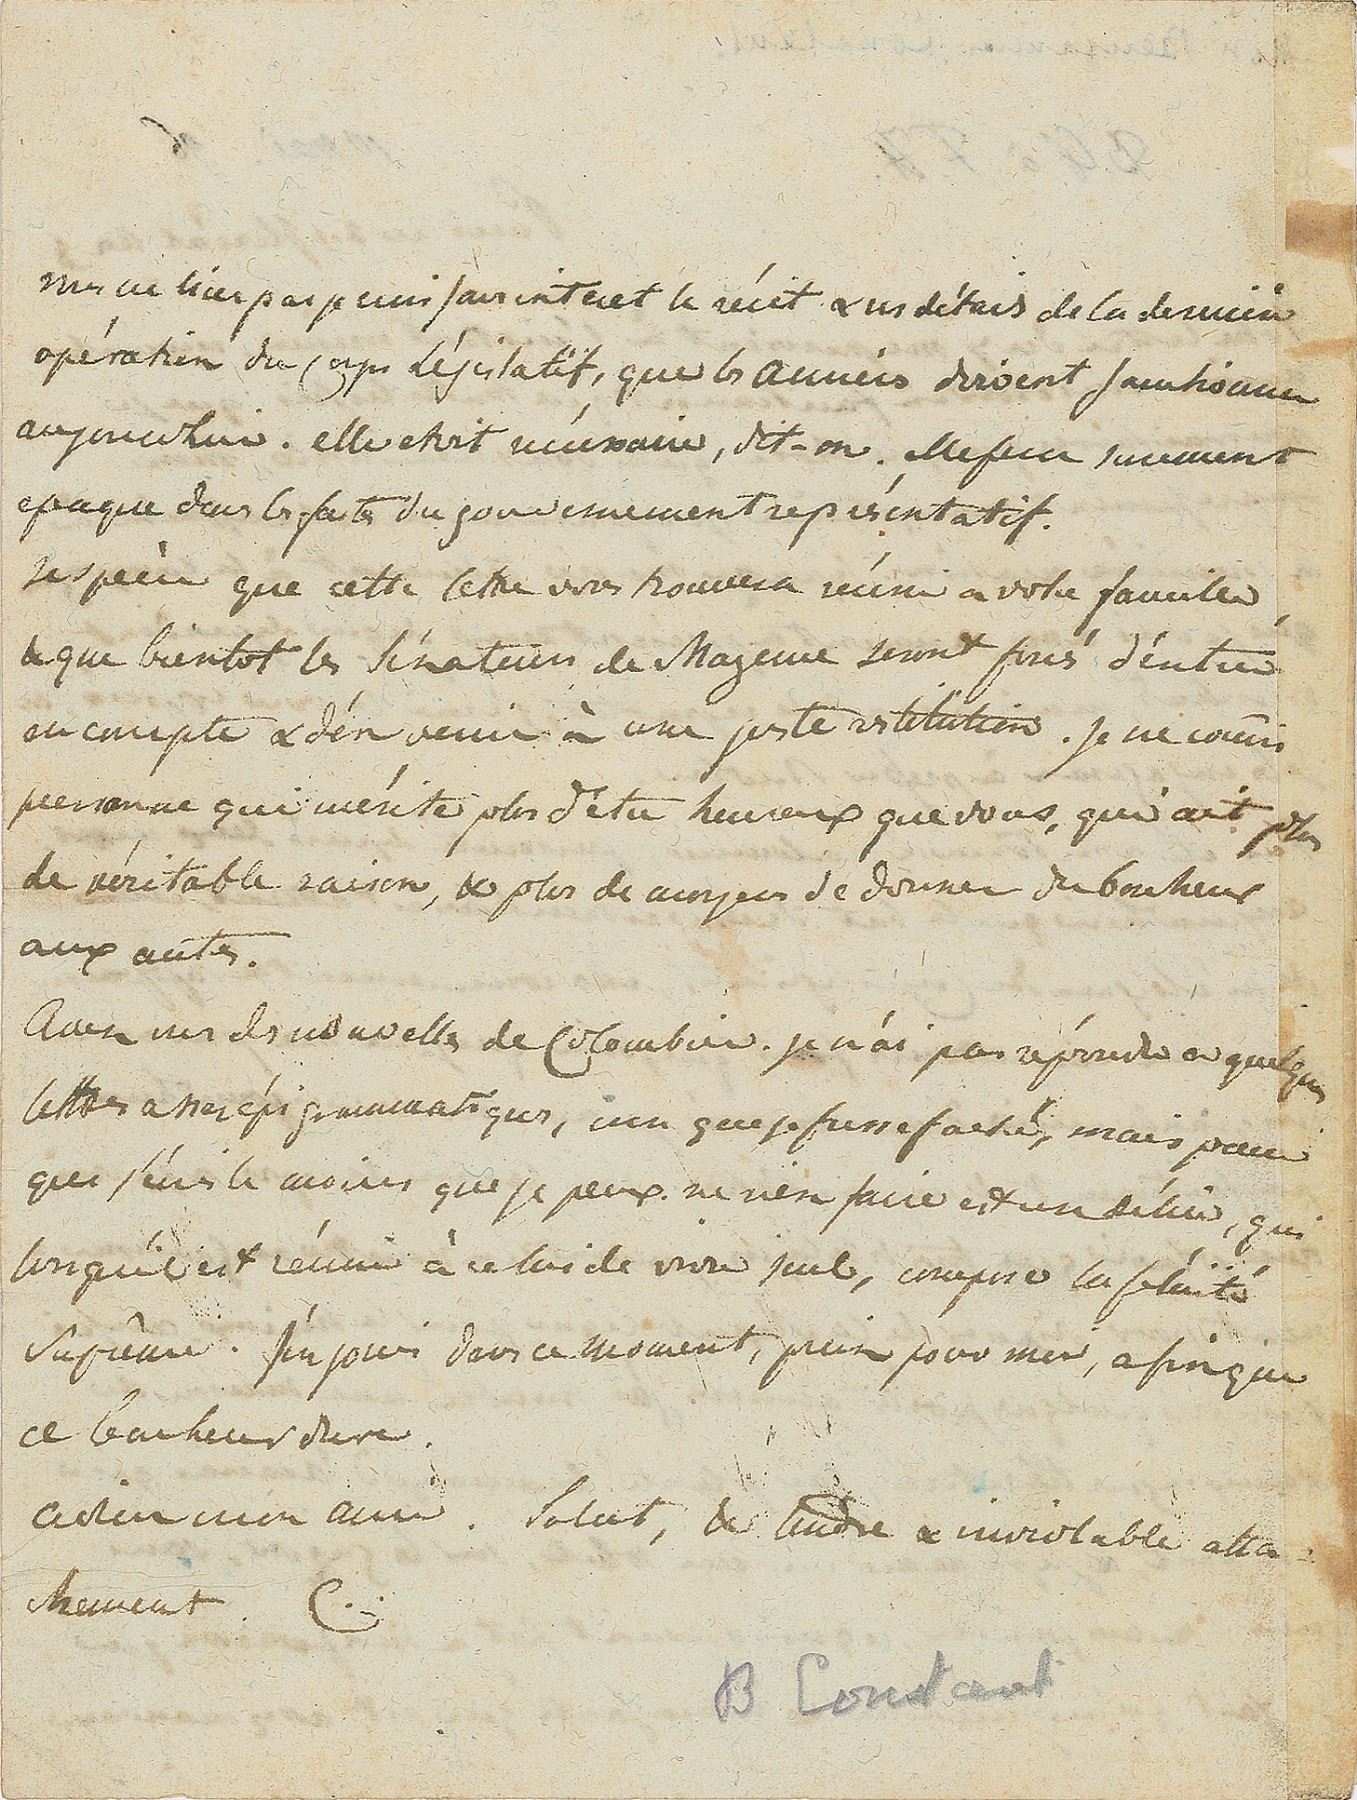 vous ne lirez pas je crois sans interet le récit & les détails de la dernière
opération du Corps Législatif, que les Années doivent sanctionner
aujourdhui. elle etoit nécessaire, dit-on. elle fera surement
epoque dans les fastes du gouvernement représentatif.
J'espère que cette lettre vous trouvera réuni a votre famille,
& que bientot les Sénateurs de Mayence seront forcés d'éntrer
en compte & d'én venir à une juste restitution. Je ne connois
personne qui mérite plus d'être heureux que vous, qui ait plus
de véritable raison, & plus de moyens de donner du bonheur
aux autres.
Avez vous des nouvelles de Colombier. je n'ai pas répondu a quelques
lettres assez épigrammatiques, non que je fusse faché, mais parce
que j'écris le moins que je peux. ne rien faire est un délice, qui
lorsqu'il est réuni à celui de vivre seul, compose la félicité
Suprême. J'én jouis dans ce moment, priez pour moi, afin que
ce bonheur dure.
adieu mon ami. Salut, & tendre & inviolable atta-
chement. C...
B Constant